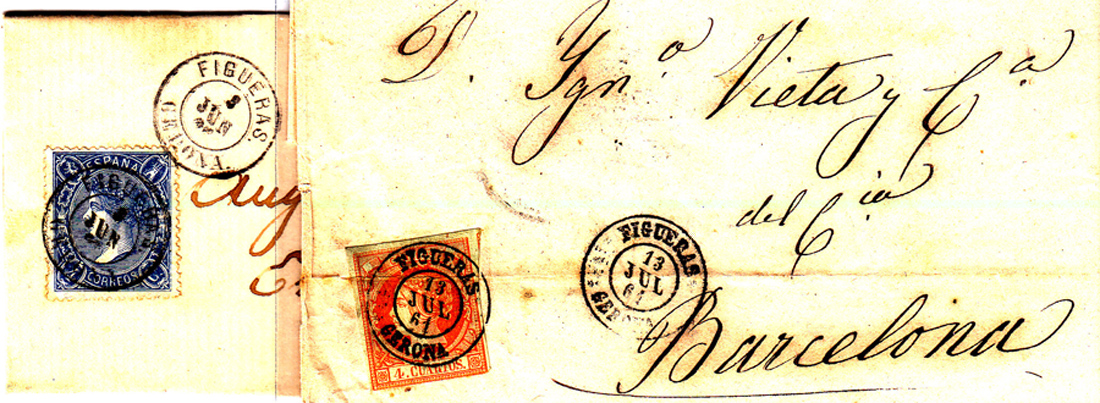 FIGUERAS.
9
JUN
GERONA
ESPAÑA
JUN
CORREOS
Aug
D. Ygn.º Vieta y C.ª
del C.ió
Barcelona
FIGUERAS
13
JUL
61
GERONA
4. CUARTOS.
FIGUERAS
13
JUL
61
GERONA